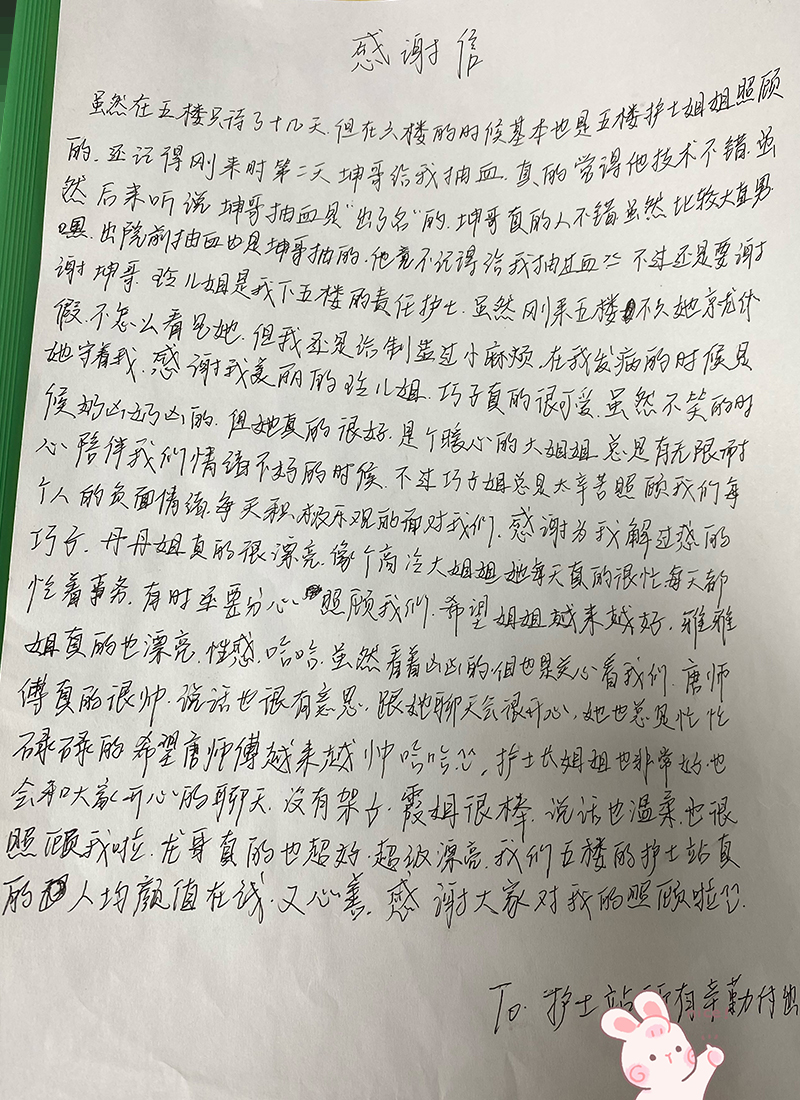 感谢信
虽然在五楼只待了十几天.但在六楼的时候基本也是五楼护士姐姐照顾
的.还记得刚来时第二天坤哥给我抽血.真的觉得他技术不错.虽
然后来听说坤哥抽血是"出了名"的.坤哥真的人不错虽然比较大直男
嘿.出院前抽血也是坤哥抽的.他竟不记得给我抽过血 不过还是要谢
谢坤哥.玲儿姐是我下五楼的责任护士.虽然刚来五楼不久她就休
假.不怎么看见她.但我还是给制造过小麻烦.在我发病的时候是
她守着我.感谢我美丽的玲儿姐.巧子真的很可爱.虽然不笑的时
候奶凶奶凶的.但她真的很好.是个暖心的大姐姐总是有无限耐
心陪伴我们情绪不好的时候.不过巧子姐总是太辛苦照顾我们每
个人的负面情绪.每天积极乐观的面对我们.感谢为我解过惑的
巧子.丹丹姐真的很漂亮.像个高冷大姐姐她每天真的很忙每天都
忙着事务.有时还要分心照顾我们.希望姐姐越来越好.雅雅
姐真的也漂亮.性感.哈哈.虽然看着凶凶的.但也是关心着我们.唐师
傅真的很帅.说话也很有意思.跟她聊天会很开心.她也总是忙忙
碌碌的希望唐师傅越来越帅哈哈.护士长姐姐也非常好.也
会和大家开心的聊天.没有架子.霞姐很棒.说话也温柔.也很
照顾我啦.龙哥真的也超好.超级漂亮.我们五楼的护士站真
的人均颜值在线.又心善.感谢大家对我的照顾啦
To.护士站所有辛勤付出